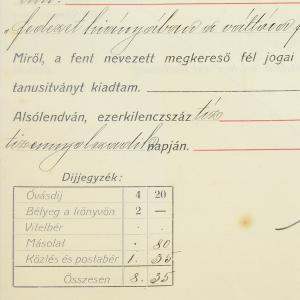 "fedezet hiányában a váltám
Miről, a fent nevezett megkereső fél jogai
tanusítványt kiadtam.
Alsólendván, ezerkilenczszáz tíz
tizennyolczadik napján.
Díjjegyzék:
Óvásdíj 4 20
Bélyeg a könyvön 2 —
Vitelbér . .
Másolat . 80
Közlés és postabér 1. 35
Összesen 8. 35